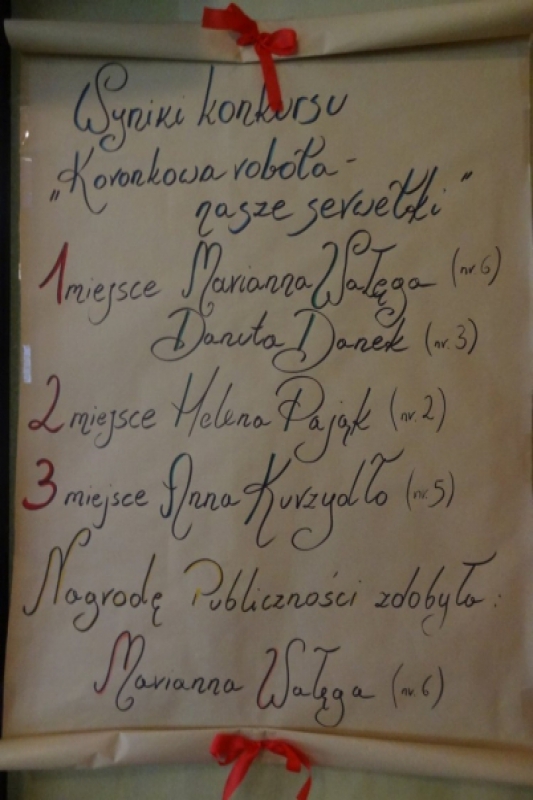 Wyniki konkursu
„Koronkowa robota -
nasze serwetki"
1 miejsce Marianna Wałęga (nr 6)
Danuta Danek (nr. 3)
2 miejsce Helena Pająk (nr. 2)
3 miejsce Anna Kurzydło (nr. 5)
Nagrodę Publiczności zdobyła:
Marianna Wałęga (nr. 6)